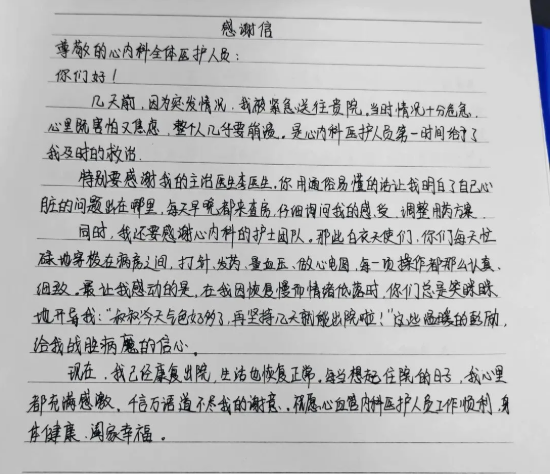 感谢信
尊敬的心内科全体医护人员：
你们好！
几天前，因为突发情况，我被紧急送往贵院。当时情况十分危急，
心里既害怕又焦虑，整个人几乎要崩溃。是心内科医护人员第一时间给予了
我及时的救治.
特别要感谢我的主治医生李医生。你用通俗易懂的话让我明白了自己心
脏的问题出在哪里，每天早晚都来查房，仔细询问我的感受，调整用药方案.
同时，我还要感谢心内科的护士团队。那些白衣天使们，你们每天忙
碌地穿梭在病房之间，打针、发药、量血压、做心电图，每一项操作都那么认真、
细致。最让我感动的是，在我因恢复慢而情绪低落时，你们总是笑眯眯
地开导我：“叔叔今天气色好多了，再坚持几天就能出院啦！”这些温暖的鼓励，
给我战胜病魔的信心。
现在，我已经康复出院，生活也恢复正常。每当想起住院的日子，我心里
都充满感激。千言万语道不尽我的谢意。祝愿心血管内科医护人员工作顺利，身
体健康、阖家幸福。